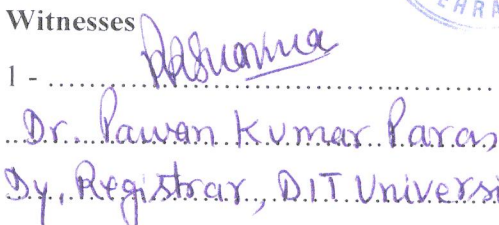 EHRA
Witnesses
1 - ........................................
Dr. Pawan Kumar Paras
Dy. Registrar, DIT Universi